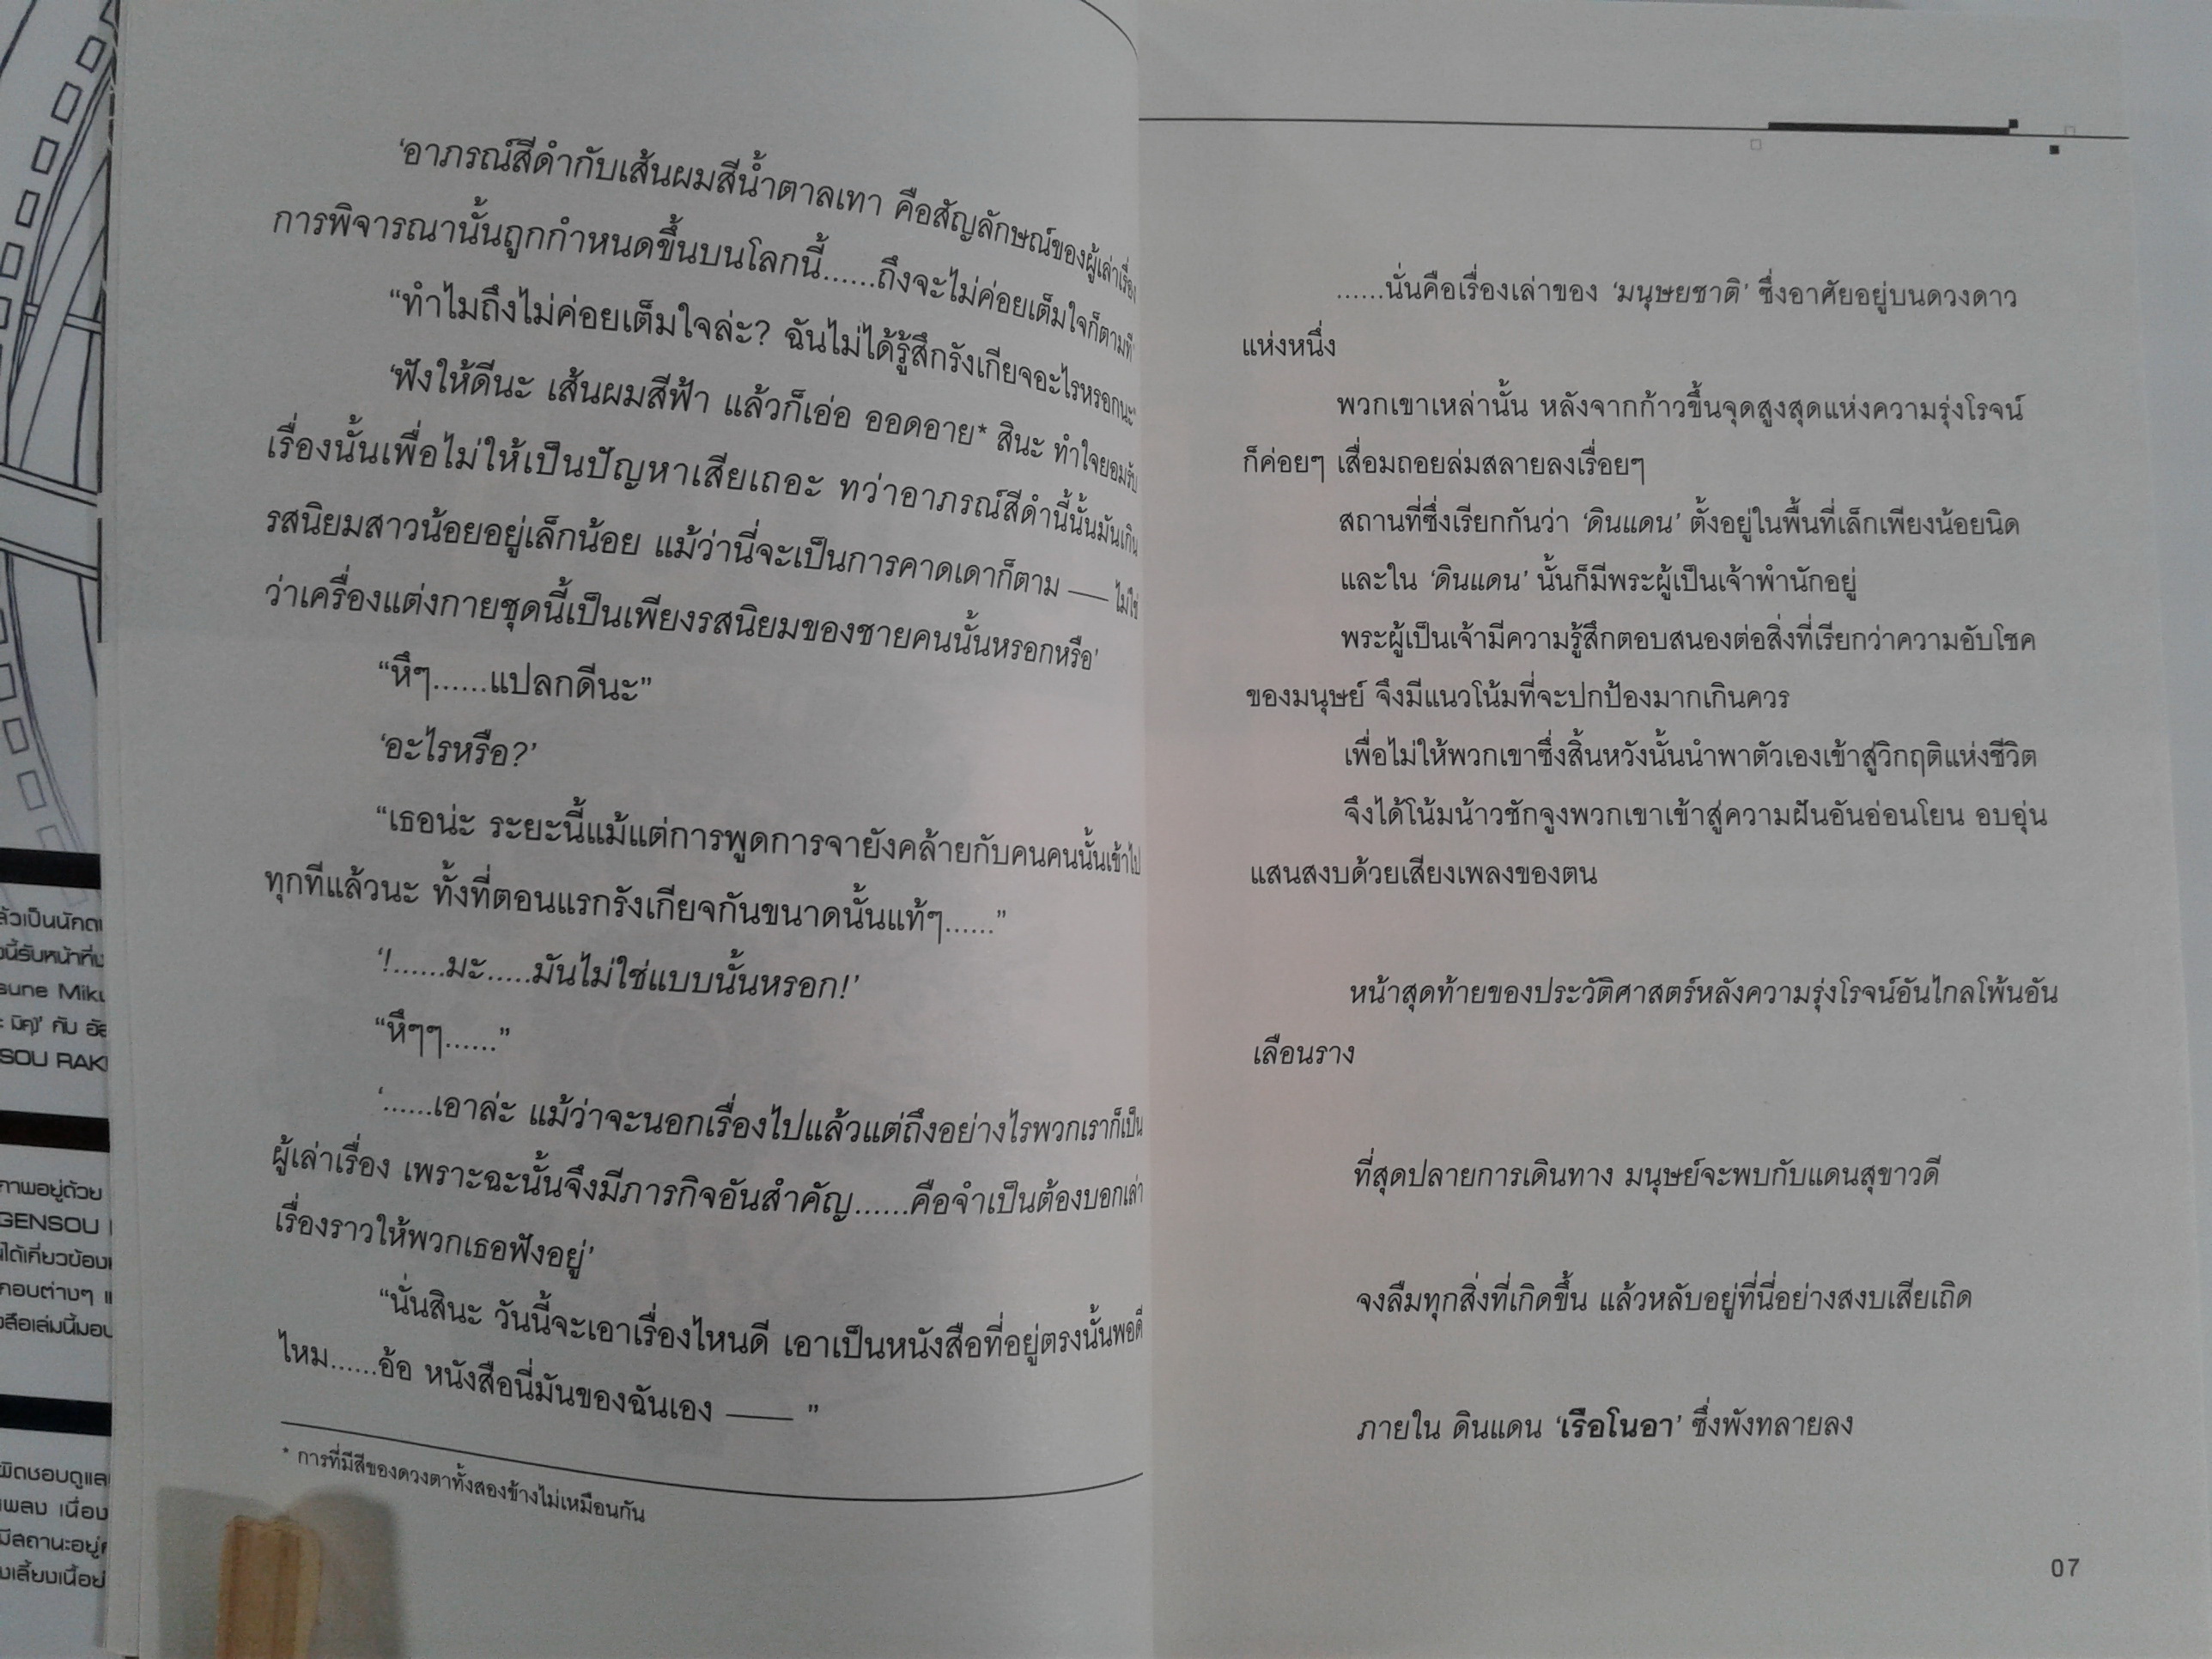 ล้วเป็นนัก
นี้รับหน้าที่
sune Miku
มิคุ)' กับ
SOU RAK
ภาพอยู่ด้วย
GENSOU
ได้เกี่ยวข้อง
กอบต่างๆ
สือเล่มนี้มอบ
ผิดชอบดูแล
เพลง เนื่อง
มีสถานะอยู่
เลี้ยงเนื้อ
‘อาภรณ์สีดำกับเส้นผมสีน้ำตาลเทา คือสัญลักษณ์ของผู้เล่าเรื่อง
การพิจารณานั้นถูกกำหนดขึ้นบนโลกนี้……ถึงจะไม่ค่อยเต็มใจก็ตามที’
“ทำไมถึงไม่ค่อยเต็มใจล่ะ? ฉันไม่ได้รู้สึกรังเกียจอะไรหรอกนะ”
‘ฟังให้ดีนะ เส้นผมสีฟ้า แล้วก็เอ่อ ออดอาย* สินะ ทำใจยอมรับ
เรื่องนั้นเพื่อไม่ให้เป็นปัญหาเสียเถอะ ทว่าอาภรณ์สีดำนี้นั้นมันเกิน
รสนิยมสาวน้อยอยู่เล็กน้อย แม้ว่านี่จะเป็นการคาดเดาก็ตาม —— ไม่ใช่
ว่าเครื่องแต่งกายชุดนี้เป็นเพียงรสนิยมของชายคนนั้นหรอกหรือ’
“หึๆ……แปลกดีนะ”
‘อะไรหรือ?’
“เธอน่ะ ระยะนี้แม้แต่การพูดการจายังคล้ายกับคนคนนั้นเข้าไป
ทุกทีแล้วนะ ทั้งที่ตอนแรกรังเกียจกันขนาดนั้นแท้ๆ……”
‘!……มะ……มันไม่ใช่แบบนั้นหรอก!’
“หึๆๆ……”
‘……เอาล่ะ แม้ว่าจะนอกเรื่องไปแล้วแต่ถึงอย่างไรพวกเราก็เป็น
ผู้เล่าเรื่อง เพราะฉะนั้นจึงมีภารกิจอันสำคัญ……คือจำเป็นต้องบอกเล่า
เรื่องราวให้พวกเธอฟังอยู่’
“นั่นสินะ วันนี้จะเอาเรื่องไหนดี เอาเป็นหนังสือที่อยู่ตรงนั้นพอดี
ไหม……อ้อ หนังสือนี่มันของฉันเอง —— ”
* การที่มีสีของดวงตาทั้งสองข้างไม่เหมือนกัน
……นั่นคือเรื่องเล่าของ ‘มนุษยชาติ’ ซึ่งอาศัยอยู่บนดวงดาว
แห่งหนึ่ง
พวกเขาเหล่านั้น หลังจากก้าวขึ้นจุดสูงสุดแห่งความรุ่งโรจน์
ก็ค่อยๆ เสื่อมถอยล่มสลายลงเรื่อยๆ
สถานที่ซึ่งเรียกกันว่า ‘ดินแดน’ ตั้งอยู่ในพื้นที่เล็กเพียงน้อยนิด
และใน ‘ดินแดน’ นั้นก็มีพระผู้เป็นเจ้าพำนักอยู่
พระผู้เป็นเจ้ามีความรู้สึกตอบสนองต่อสิ่งที่เรียกว่าความอับโชค
ของมนุษย์ จึงมีแนวโน้มที่จะปกป้องมากเกินควร
เพื่อไม่ให้พวกเขาซึ่งสิ้นหวังนั้นนำพาตัวเองเข้าสู่วิกฤติแห่งชีวิต
จึงได้โน้มน้าวชักจูงพวกเขาเข้าสู่ความฝันอันอ่อนโยน อบอุ่น
แสนสงบด้วยเสียงเพลงของตน
หน้าสุดท้ายของประวัติศาสตร์หลังความรุ่งโรจน์อันไกลโพ้นอัน
เลือนราง
ที่สุดปลายการเดินทาง มนุษย์จะพบกับแดนสุขาวดี
จงลืมทุกสิ่งที่เกิดขึ้น แล้วหลับอยู่ที่นี่อย่างสงบเสียเถิด
ภายใน ดินแดน ‘เรือโนอา’ ซึ่งพังทลายลง
07